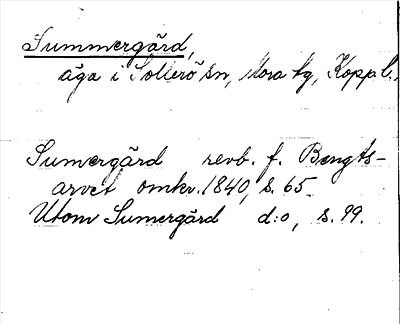 Summergård,
äga i Sollerö sn, Mora tg, Kopp.l.,
Sumergård revb. f. Bengts-
arvet omkr. 1840, s. 65
Utom Sumergård d:o, s. 99.